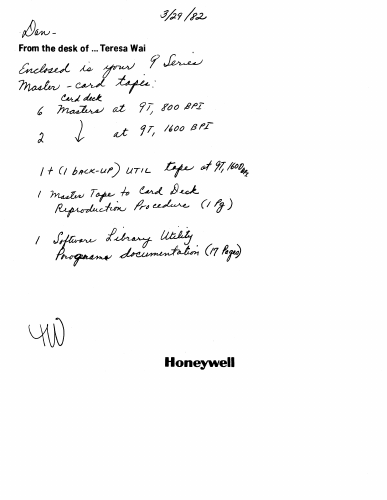 3/29/82
Den-
From the desk of ... Teresa Wai
Enclosed is your 9 Series
Master - card tapes:
Card deck
6 Masters at 9T, 800 BPI
2 ↓ at 9T, 1600 BPI
1 + (1 BACK-UP) UTIL tape at 9T, 1600
1 Master Tape to Card Deck
Reproduction Procedure (1 Pg)
1 Software Library Utility
Programs documentation (17 Pages)
TW
Honeywell